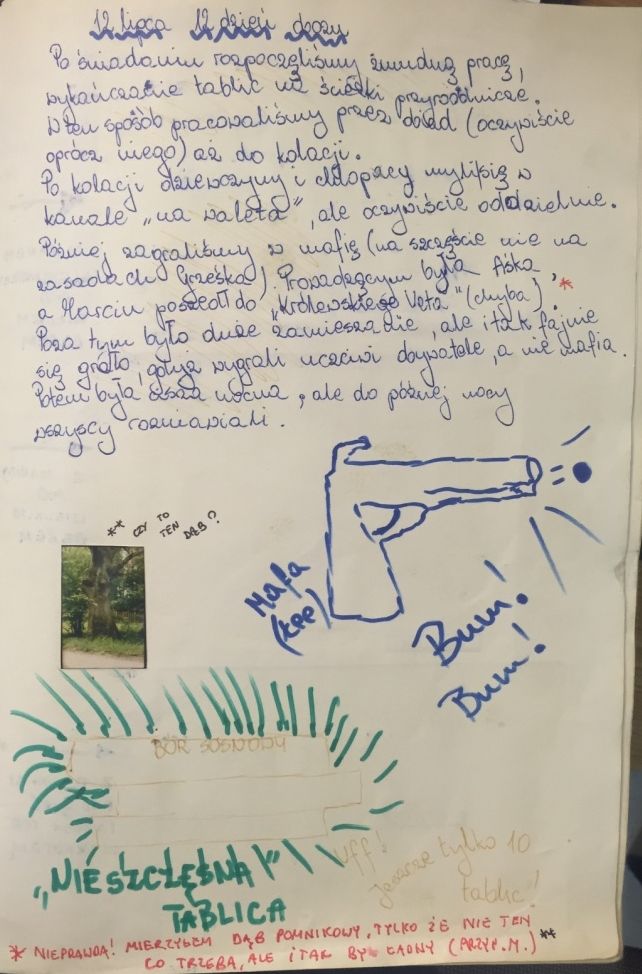 12 lipca 12 dzień obozu
Po śniadaniu rozpoczęliśmy żmudną pracę,
wykańczanie tablic na ścieżki przyrodnicze.
W ten sposób pracowaliśmy przez obiad (oczywiście
oprócz niego) aż do kolacji.
Po kolacji dziewczyny i chłopacy myli się w
kanale „na waleta", ale oczywiście oddzielnie.
Później zagraliśmy w mafię (na szczęście nie na
zasadach Grześka). Prowadzącym była Aśka,
a Marcin poszedł do „Królewskiego Veta" (chyba). *
Poza tym było duże zamieszanie, ale i tak fajnie
się grało, gdyż wygrali uczciwi obywatele, a nie mafia.
Potem była cisza nocna, ale do późnej nocy
wszyscy rozmawiali.
** CZY TO
TEN
DĄB?
Mafia
Bum!
Bum!
BÓR SOSNOWY
„NIESZCZĘSNA"
TABLICA
Uff!
Jeszcze tylko 10
tablic!
* NIEPRAWDA! MIERZYŁEM DĄB POMNIKOWY, TYLKO ŻE NIE TEN
CO TRZEBA, ALE I TAK BYŁ ŁADNY (PRZYP. M.) **